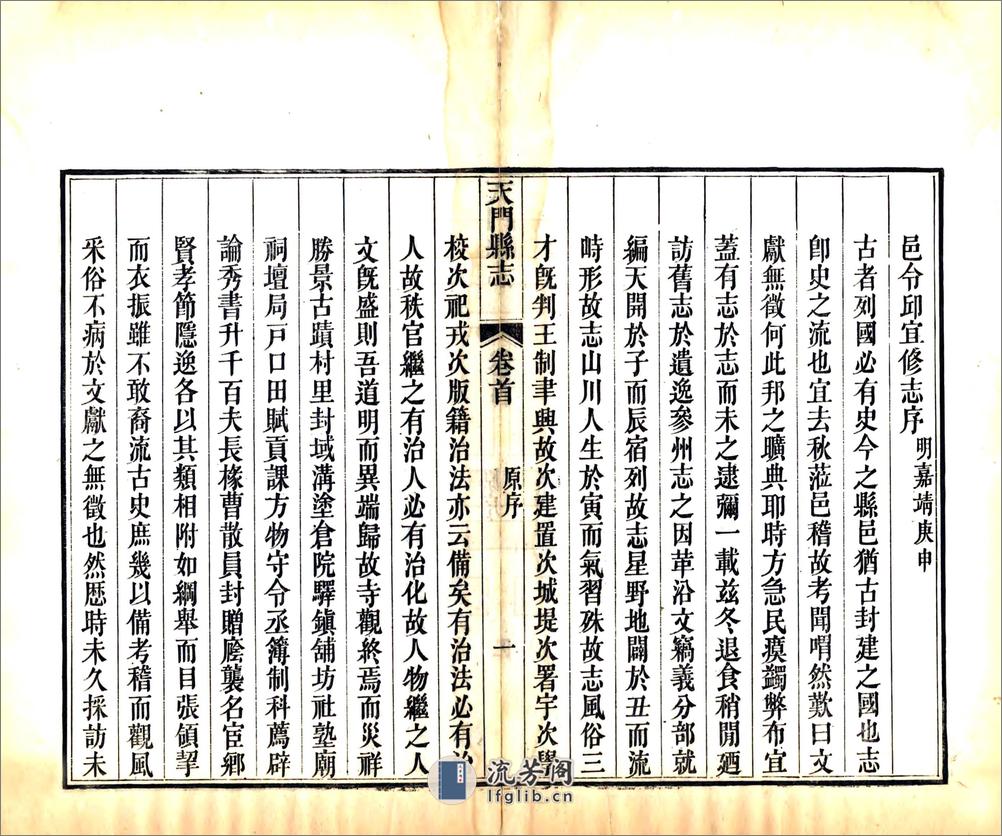 邑令邱宜修志序 明嘉靖庚申
古者列國必有史今之縣邑猶古封建之國也志
卽史之流也宜去秋蒞邑稽故考聞喟然歎曰文
獻無徵何此邦之曠典耶時方急民瘼蠲弊布宜
蓋有志於志而未之逮彌一載玆冬退食稍閒廼
訪舊志於遺逸參州志之因革沿文竊義分部就
編天開於子而辰宿列故志星野地闢於丑而流
峙形故志山川人生於寅而氣習殊故志風俗三
才旣判王制聿興故次建置次城堤次署宇次學
天門縣志 卷首 原序 一
校次祀戎次版籍治法亦云備矣有治法必有治
人故秩官繼之有治人必有治化故人物繼之人
文旣盛則吾道明而異端歸故寺觀終焉而災祥
勝景古蹟村里封域溝塗倉院驛鎮舖坊社塾廟
祠壇局戸口田賦貢課方物守令丞簿制科薦辟
論秀書升千百夫長椽曹散員封贈廕襲名宦鄉
賢孝節隱逸各以其類相附如綱舉而目張領挈
而衣振雖不敢裔流古史庶幾以備考稽而觀風
采俗不病於文獻之無徵也然歷時未久採訪未
流芳閣
lfglib.cn